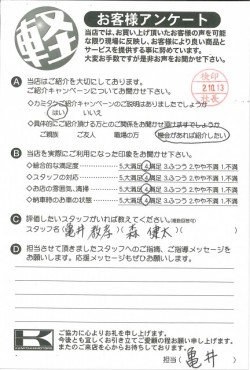 軽
お客様アンケート
当店では、お買い上げ頂いたお客様の声を可能
な限り現場に反映し、お客様により良い商品と
サービスを提供する事に努めています。
大変お手数ですが是非お声をお聞かせ下さい。
A 当店はご紹介を大切にしております。
ご紹介キャンペーンについてお聞かせ下さい。
はい いいえ
ご親族 ご友人 職場の方 機会があれば紹介したい
検印
2.10.13
社長
B 当店を実際にご利用になった印象をお聞かせ下さい。
◇総合的な満足度 5.大満足 4.満足 3.ふつう 2.やや不満 1.不満
◇スタッフの対応 5.大満足 4.満足 3.ふつう 2.やや不満 1.不満
◇お店の雰囲気、清掃 5.大満足 4.満足 3.ふつう 2.やや不満 1.不満
◇納車時のお車の状態 5.大満足 4.満足 3.ふつう 2.やや不満 1.不満
C 評価したいスタッフがいれば教えてください。
スタッフ名 (森 健太)
D 担当させて頂きましたスタッフへのご指摘、ご指導メッセージを
お願いします。応援メッセージもぜひお願いします。
K
ご協力に心よりお礼を申し上げます。
今後とも宜しくお引き立てご愛顧の程お願い申し上げます。
またのご来店を心からお待ちしております。
担当( 亀井 )